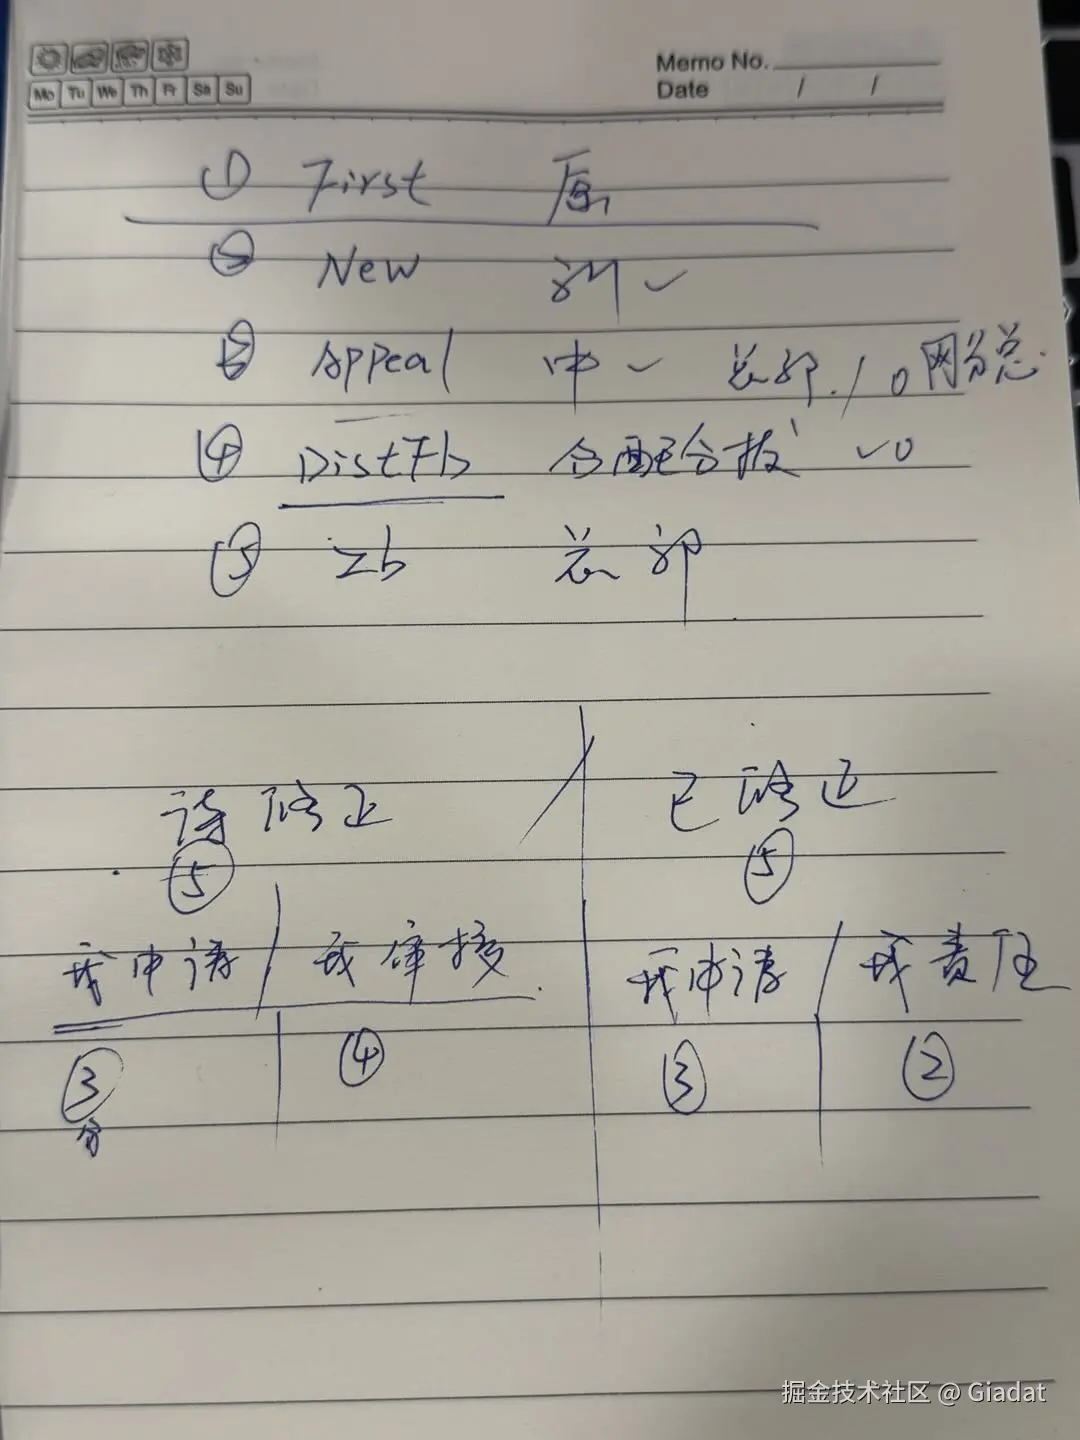 Memo No.
Mo Tu We Th Fr Sa Su
Date / /
① First 原
② New
③ Appeal 申 ✓ 总部 / 0 网分总
④ DistFb 分配分拨 ✓ 0
⑤ Zb 总部
待修正 已修正
⑤ ⑤
我申请 / 我审核 我申请 / 我责任
③ ④ ③ ②
分
掘金技术社区 @ Giadat